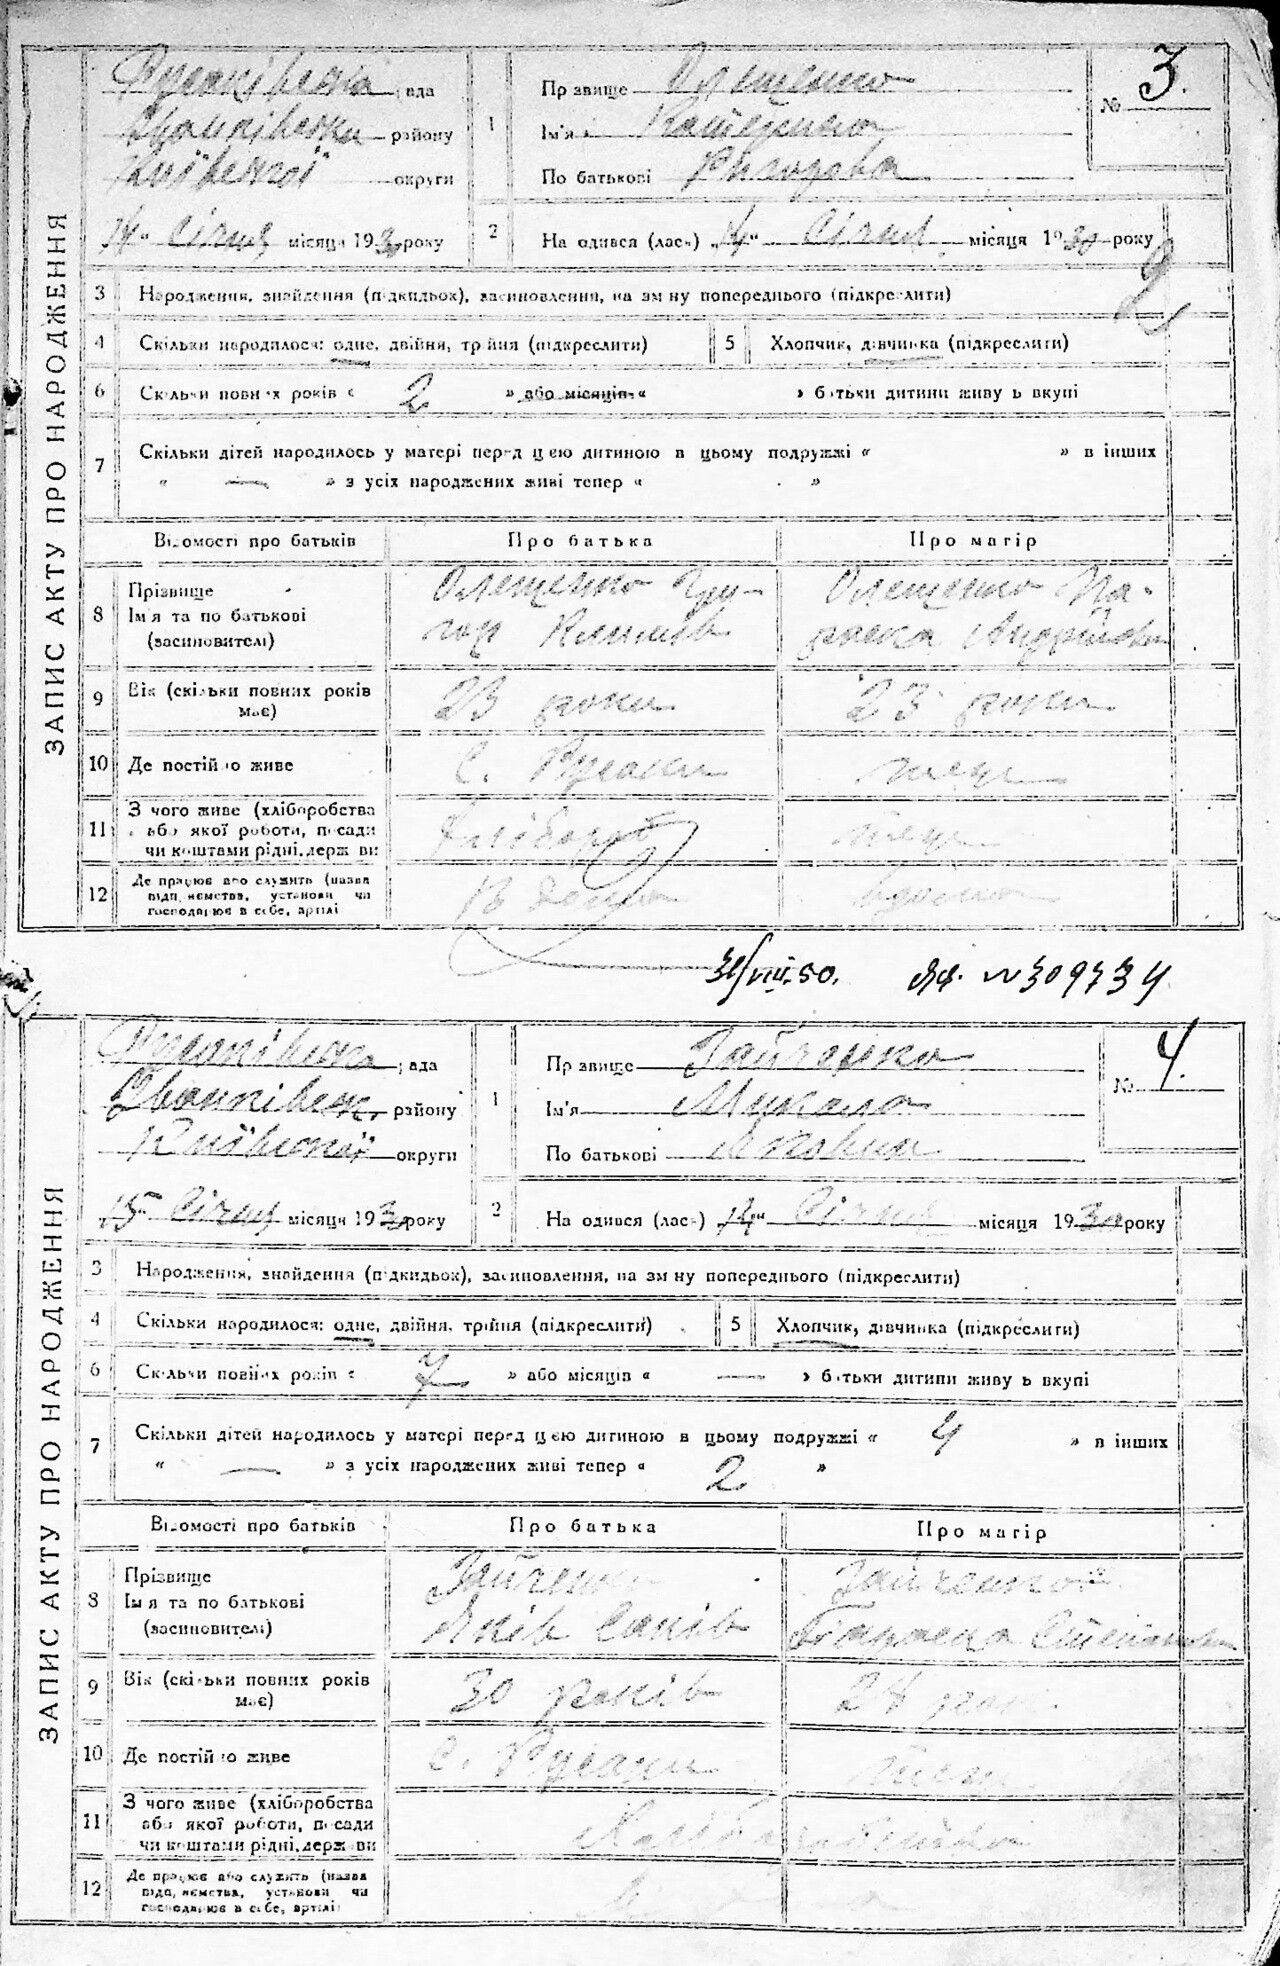 ЗАПИС АКТУ ПРО НАРОДЖЕННЯ
Русаківська рада
Іванківськ. району
Київської округи
„14“ Січня місяця 1930 року
1
Прізвище Олещенко
Ім'я Катерина
По батькові Григорова
№ 3.
2
Народився (лась) „14“ Січня місяця 1930 року
3 Народження, знайдення (підкидьок), засиновлення, на зміну попереднього (підкреслити)
4 Скільки народилося: одне, двійня, трійня (підкреслити)
5 Хлопчик, дівчинка (підкреслити)
6 Скільки повних років « 2 » або місяців « » батьки дитини живуть вкупі
7 Скільки дітей народилось у матері перед цією дитиною в цьому подружжі « » в інших
« — » з усіх народжених живі тепер « »
Відомості про батьків Про батька Про матір
8 Прізвище
Ім'я та по батькові
(засиновителі)
Олещенко Гри-
гор
Олещенко Па-
раска Андріївна
9 Вік (скільки повних років
має)
23 роки
23 роки
10 Де постійно живе
С. Русаки
теж
11 З чого живе (хліборобства
або якої роботи, посади
чи коштами рідні, держави
Хлібороб
теж
12 Де працює або служить (назва
підприємства, установи чи
господарює в себе, артілі
31/VIII.50. ЯФ. N 309734
ЗАПИС АКТУ ПРО НАРОДЖЕННЯ
Русаківська рада
Іванківськ. району
Київської округи
„15“ Січня місяця 1930 року
1
Прізвище Зайченко
Ім'я Микола
По батькові Якович
№ 4.
2
Народився (лась) „14“ Січня місяця 1930 року
3 Народження, знайдення (підкидьок), засиновлення, на зміну попереднього (підкреслити)
4 Скільки народилося: одне, двійня, трійня (підкреслити)
5 Хлопчик, дівчинка (підкреслити)
6 Скільки повних років « 7 » або місяців « — » батьки дитини живуть вкупі
7 Скільки дітей народилось у матері перед цією дитиною в цьому подружжі « 4 » в інших
« — » з усіх народжених живі тепер « 2 »
Відомості про батьків Про батька Про матір
8 Прізвище
Ім'я та по батькові
(засиновителі)
Зайченко
Яків
Зайченко
Параска Степанівна
9 Вік (скільки повних років
має)
30 років
10 Де постійно живе
С. Русаки
теж
11 З чого живе (хліборобства
або якої роботи, посади
чи коштами рідні, держави
12 Де працює або служить (назва
підприємства, установи чи
господарює в себе, артілі